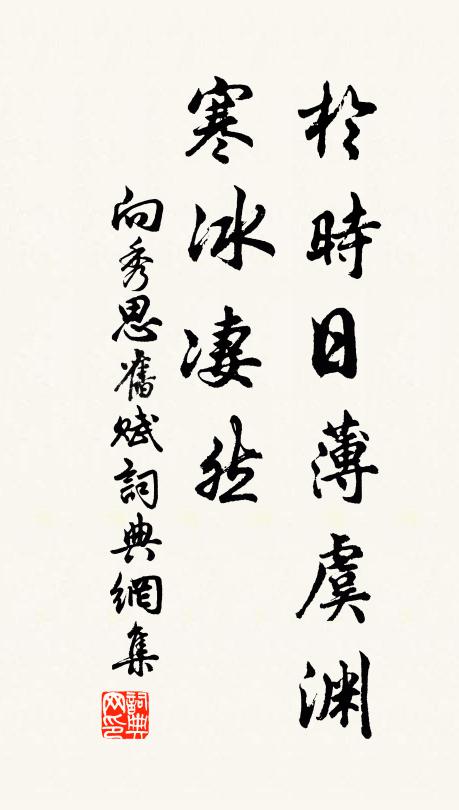 於時日薄虞淵
寒冰凄然
向秀思舊賦詞典網集
詞典網印